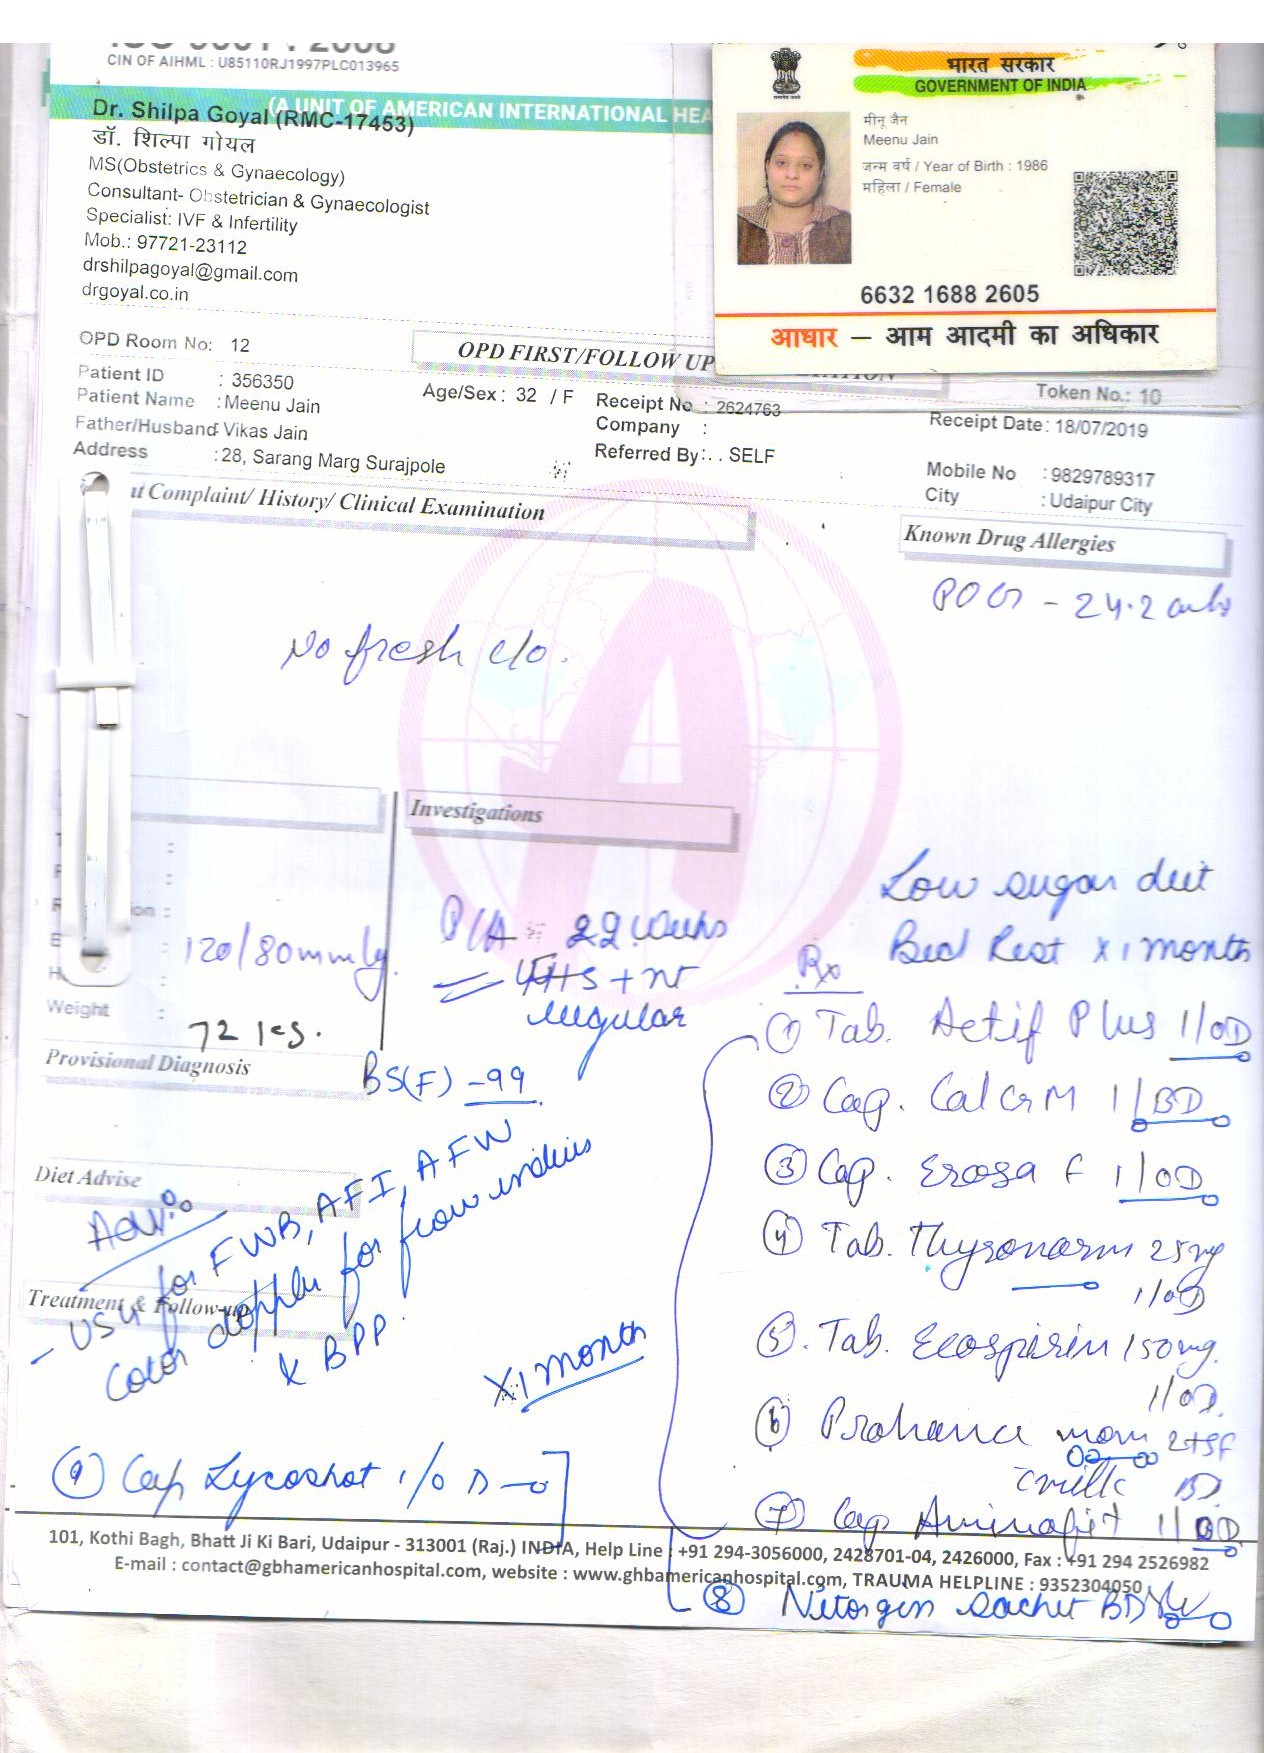 CIN OF AIHML : U85110RJ1997PLC013965
(A UNIT OF AMERICAN INTERNATIONAL HEA
Dr. Shilpa Goyal (RMC-17453)
डॉ. शिल्पा गोयल
MS(Obstetrics & Gynaecology)
Consultant- Obstetrician & Gynaecologist
Specialist: IVF & Infertility
Mob.: 97721-23112
drshilpagoyal@gmail.com
drgoyal.co.in
भारत सरकार
GOVERNMENT OF INDIA
मीनू जैन
Meenu Jain
जन्म वर्ष / Year of Birth : 1986
महिला / Female
6632 1688 2605
आधार – आम आदमी का अधिकार
OPD Room No: 12
OPD FIRST/FOLLOW UP
Token No.: 10
Patient ID : 356350
Age/Sex : 32 / F
Receipt No : 2624763
Receipt Date: 18/07/2019
Patient Name : Meenu Jain
Company :
Father/Husband: Vikas Jain
Referred By: . . SELF
Mobile No : 9829789317
Address : 28, Sarang Marg Surajpole
City : Udaipur City
Complaint/ History/ Clinical Examination
Known Drug Allergies
POG - 24.2
No fresh c/o.
Investigations
Low sugar diet
Bed Rest x 1 month
P/A 22 weeks
FHS +
regular
120/80 mmHg
Weight :
72
Provisional Diagnosis
BS(F) -99
Rx
① Tab. Actif Plus 1/OD
② Cap. Cal C M 1/BD
③ Cap. Erosa F 1/OD
④ Tab. Thyronorm 25mg
1/OD
⑤. Tab. Ecosprin 150mg.
1/OD.
⑥ Prohance mom 2tsf
c milk BD
⑦ Cap Aminofit 1/BD
⑧ Nitorgen sachet BD
Diet Advise
Adv:
Treatment & Follow-up
- USG for FWB, AFI, AFW
color doppler for flow indices
& BPP.
x1 month
⑨ Cap Lycoshot 1/OD
101, Kothi Bagh, Bhatt Ji Ki Bari, Udaipur - 313001 (Raj.) INDIA, Help Line : +91 294-3056000, 2428701-04, 2426000, Fax : +91 294 2526982
E-mail : contact@gbhamericanhospital.com, website : www.ghbamericanhospital.com, TRAUMA HELPLINE : 9352304050